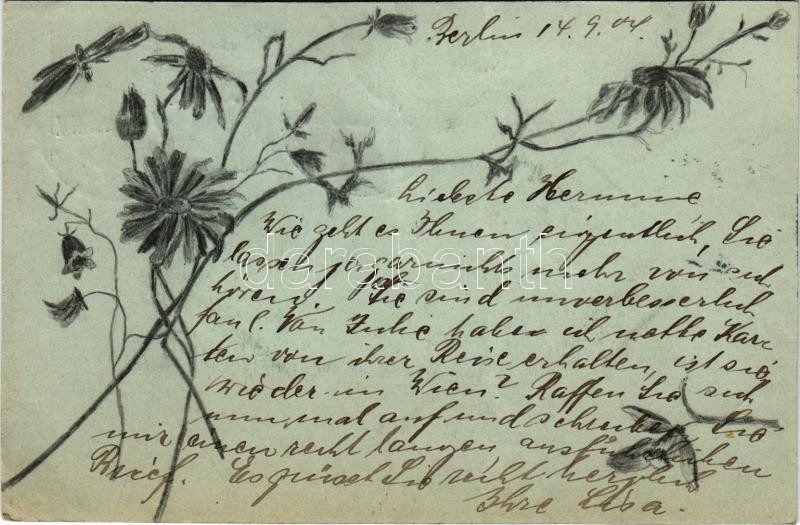 Berlin 14. 9. 04.
Liebste Hermine
Wie geht es Ihnen eigentlich, Sie
lassen ja gar nichts mehr von sich
hören! Sie sind unverbesserlich
faul. Von Julie habe ich nette Kar
ten von ihrer Reise erhalten, ist sie
wieder in Wien? Raffen Sie sich
nun mal auf und schreiben Sie
mir einen recht langen ausführlichen
Brief. Es grüsst Sie recht herzlich
Ihre Lisa.
darabanth